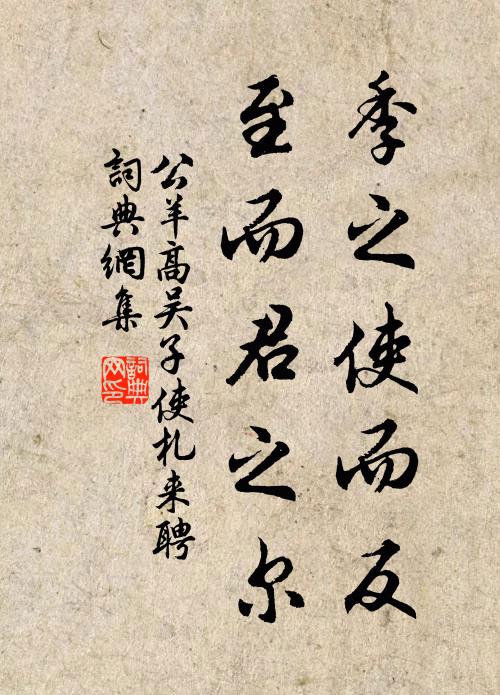 季之使而反
至而君之尔
公羊高吴子使札来聘
詞典網集
詞典网印